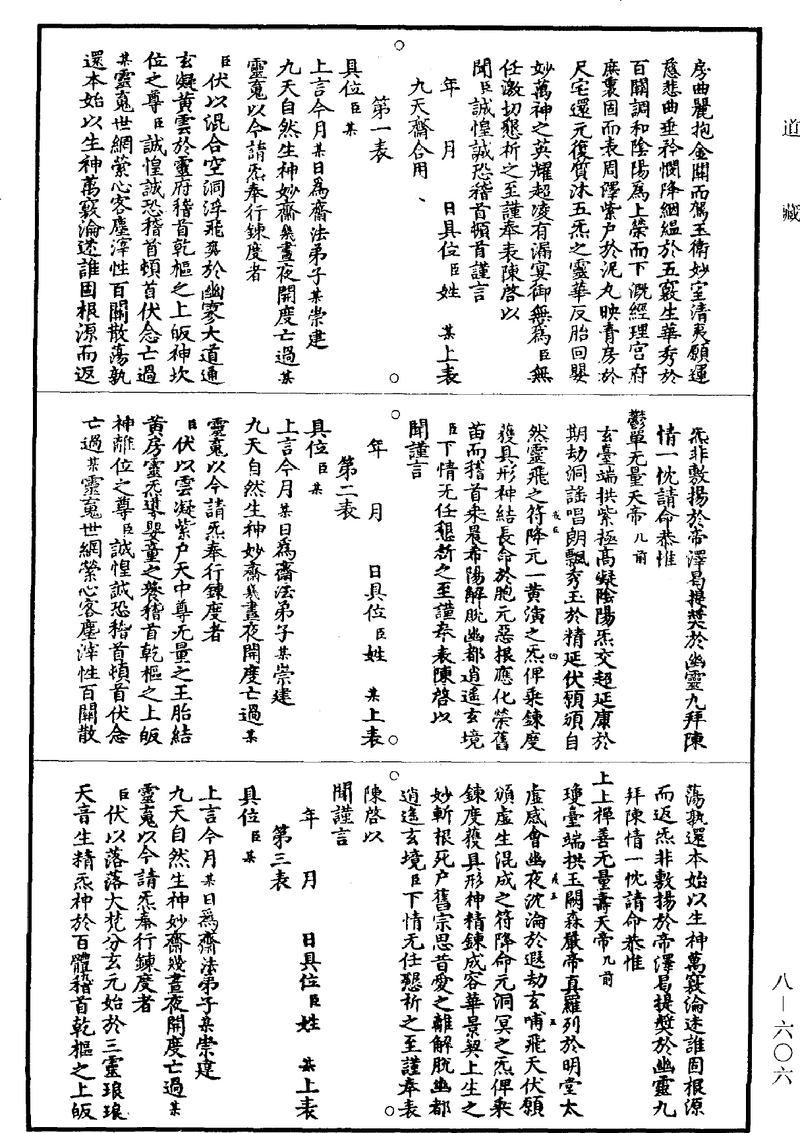 道藏
房曲麗抱金關而駕玉衛妙室清夷願運
慈悲曲垂矜憫降絪緼於五竅生華秀於
百關調和陰陽爲上榮而下溉經理宮府
庶裏固而表周澤紫戶於泥丸映青房於
尺宅還元復質沐五炁之靈華反胎回嬰
妙萬神之英耀超凌有漏宴御無爲臣無
任激切懇祈之至謹奉表陳啓以
聞臣誠惶誠恐稽首頓首謹言
年　月　日具位臣姓　某上表
九天齋合用
第一表
具位臣某
上言今月某日爲齋法弟子某崇建
九天自然生神妙齋幾晝夜開度亡過某
靈魂以今請炁奉行鍊度者
臣伏以混合空洞浮飛爽於幽寥大道通
玄凝黃雲於靈府稽首乾樞之上皈神坎
位之尊臣誠惶誠恐稽首頓首伏念亡過
某靈魂世網縈心客塵滓性百關散蕩孰
還本始以生神萬竅淪迷誰固根源而返
炁非敷揚於帝澤曷提獎於幽靈九拜陳
情一忱請命恭惟
鬱單无量天帝几前
玄臺端拱紫極高凝陰陽炁交超延康於
期劫洞謠唱朗飄秀玉於精延伏願頒自
然靈飛之符降元一黃演之炁俾乘鍊度
獲具形神結長命於胞元惡根應化榮舊
苗而稽首來晨希陽解脫幽都逍遙玄境
臣下情无任懇祈之至謹奉表陳啓以
聞謹言
年　月　日具位臣姓　某上表
第二表
具位臣某
上言今月某日爲齋法弟子某崇建
九天自然生神妙齋幾晝夜開度亡過某
靈魂以今請炁奉行鍊度者
臣伏以雲凝紫戶天中尊无量之王胎結
黃房靈炁導嬰童之養稽首乾樞之上皈
神離位之尊臣誠惶誠恐稽首頓首伏念
亡過某靈魂世網縈心客塵滓性百關散
蕩孰還本始以生神萬竅淪迷誰固根源
而返炁非敷揚於帝澤曷提獎於幽靈九
拜陳情一忱請命恭惟
上上禪善无量壽天帝几前
瓊臺端拱玉闕森嚴帝真羅列於明堂太
虛感會幽夜沈淪於遐劫玄哺飛天伏願
頒虛生混成之符降命元洞冥之炁俾乘
鍊度獲具形神精鍊成容華景契上生之
妙斬根死戶舊宗思昔愛之離解脫幽都
逍遙玄境臣下情无任懇祈之至謹奉表
陳啓以
聞謹言
年　月　日具位臣姓　某上表
第三表
具位臣某
上言今月某日爲齋法弟子某崇建
九天自然生神妙齋幾晝夜開度亡過某
靈魂以今請炁奉行鍊度者
臣伏以落落大梵分玄元始於三靈琅琅
天音生精炁神於百體稽首乾樞之上皈
八—六〇六